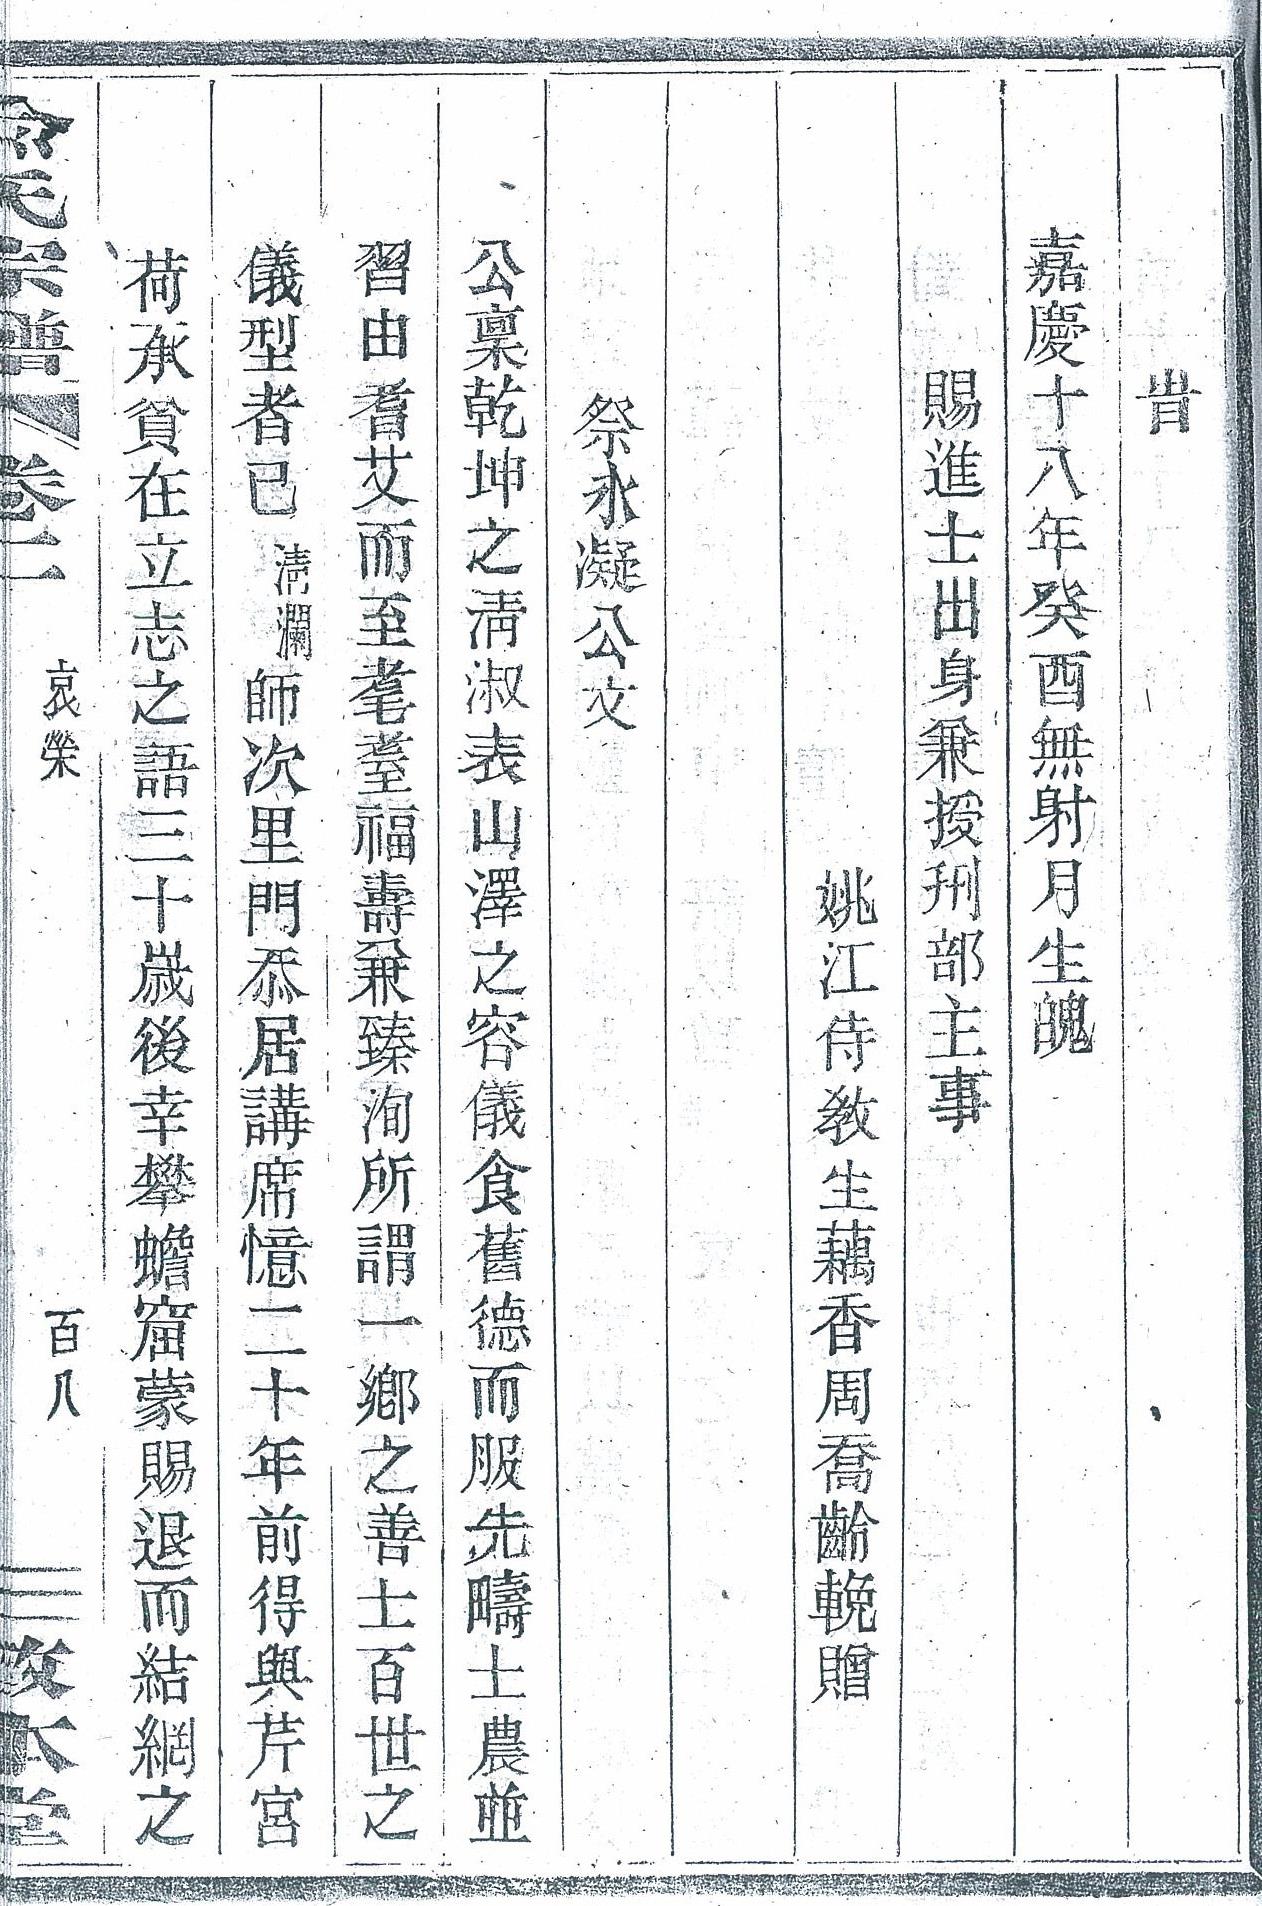 旹
嘉慶十八年癸酉無射月生魄
賜進士出身兼授刑部主事
姚江侍教生藕香周喬齡輓贈
祭永凝公文
公稟乾坤之淸淑表山澤之容儀食舊德而服先疇士農並
習由耆艾而至耄耋福壽兼臻洵所謂一鄉之善士百世之
儀型者已淸瀾師次里門忝居講席憶二十年前得與芹宮
荷承貧在立志之語三十歲後幸攀蟾窟蒙賜退而結網之
俞氏宗譜 卷二 哀榮 百八 敦本堂